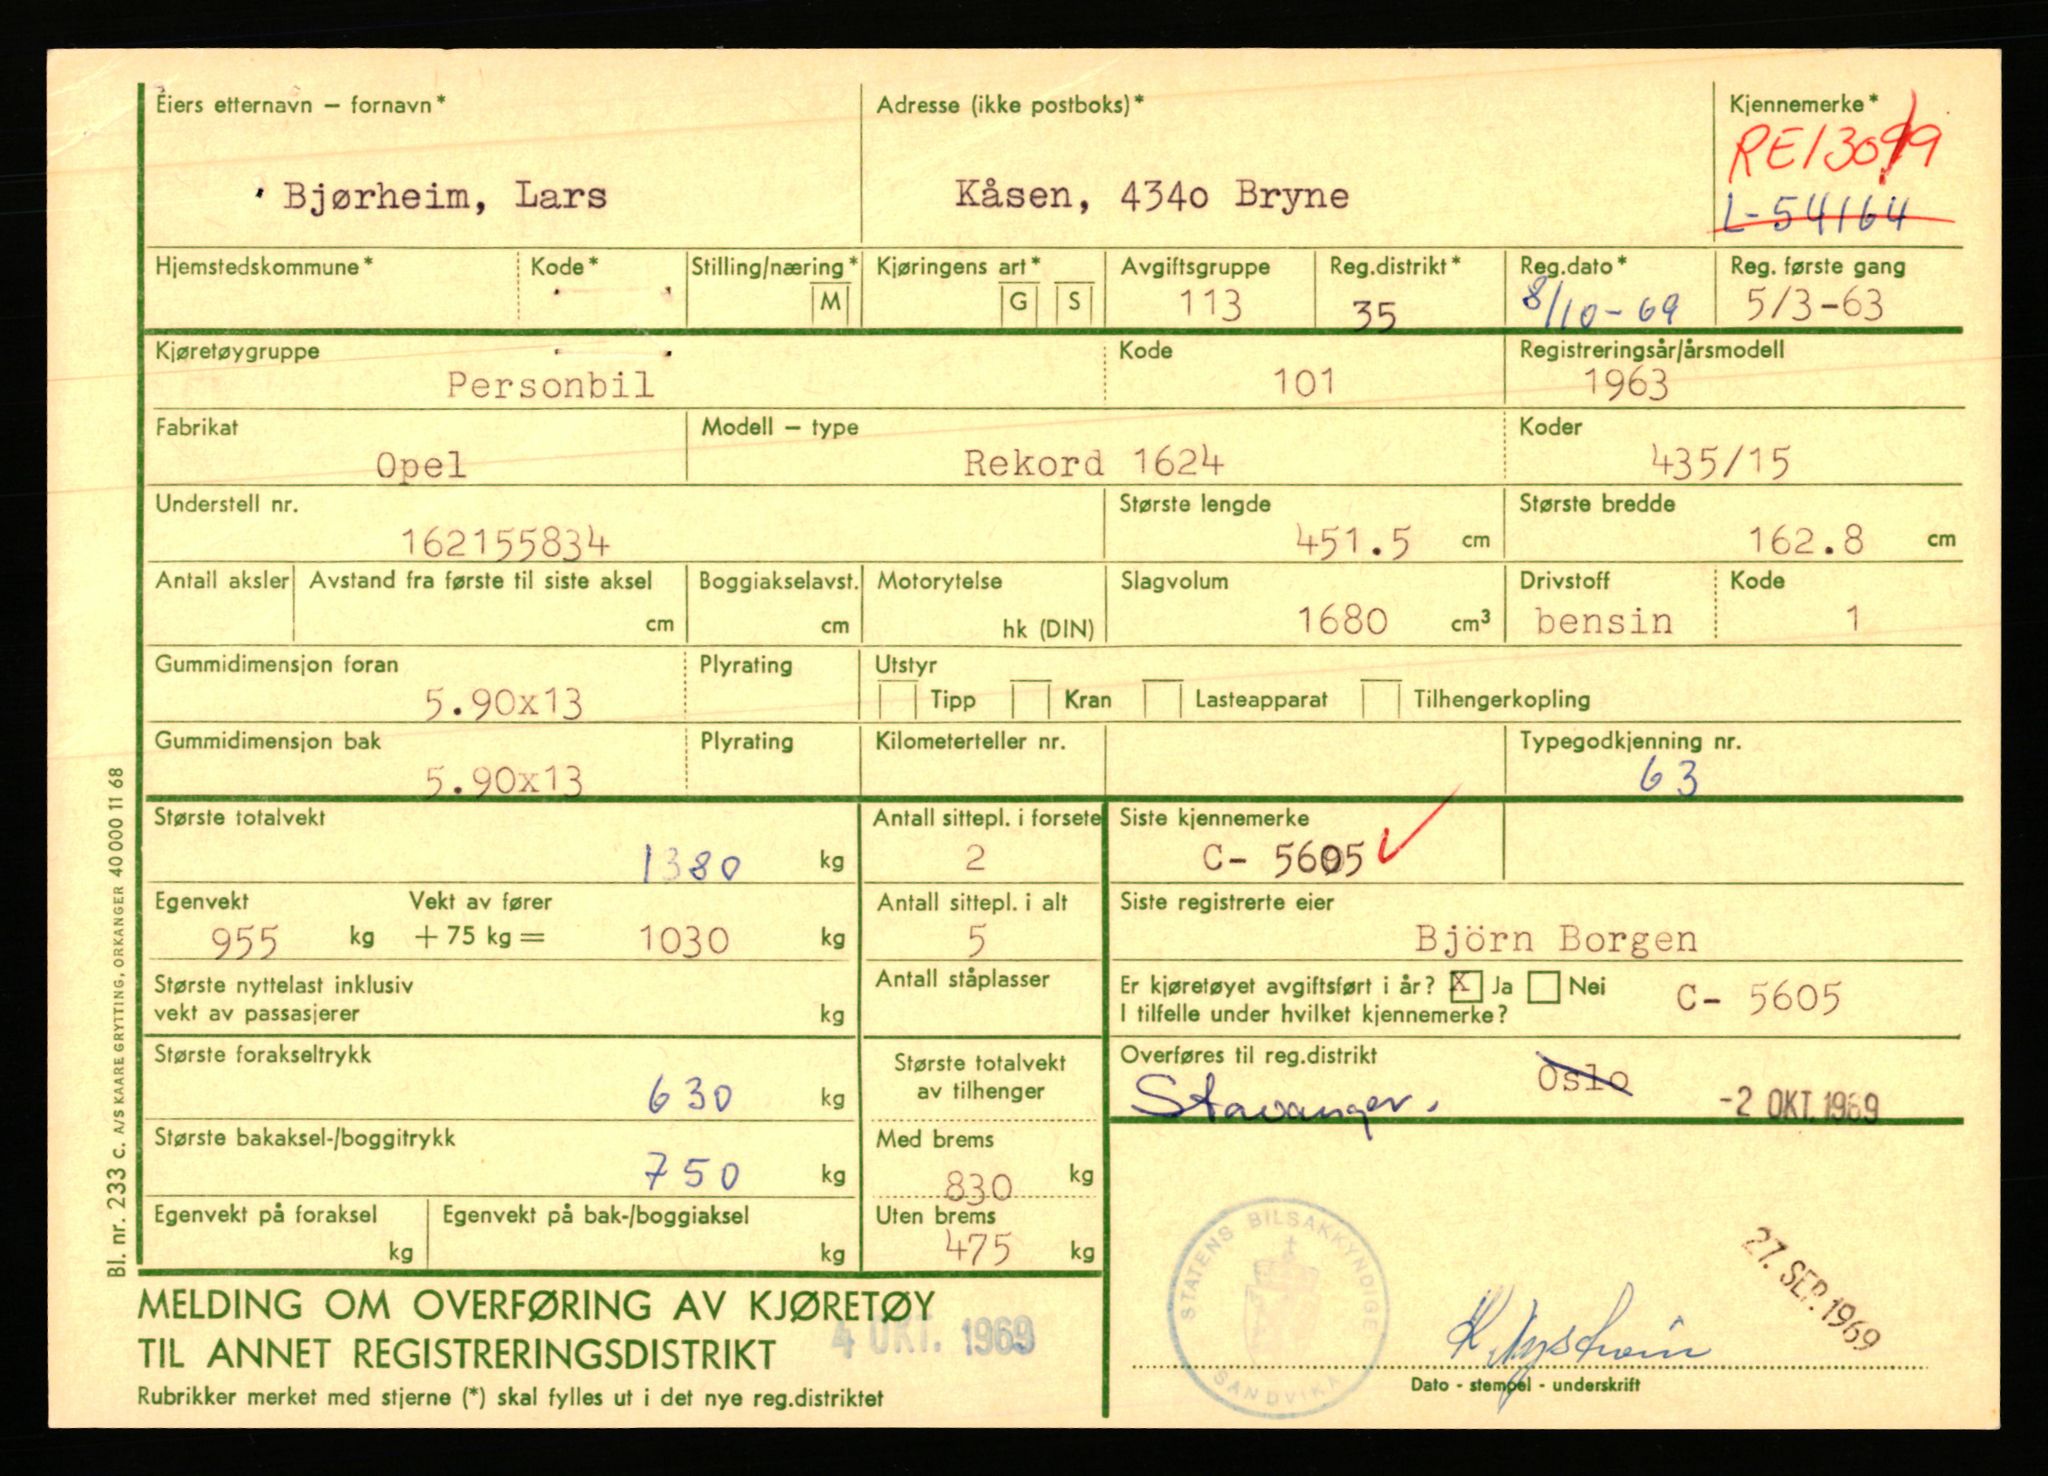 Eiers etternavn – fornavn*
Adresse (ikke postboks)*
Kjennemerke*
Bjørheim, Lars
Kåsen, 4340 Bryne
L-54164
Hjemstedskommune*
Kode*
Stilling/næring*
M
Kjøringens art*
G
S
Avgiftsgruppe
113
Reg.distrikt*
35
Reg.dato*
8/10-69
Reg. første gang
5/3-63
Kjøretøygruppe
Personbil
Kode
101
Registreringsår/årsmodell
1963
Fabrikat
Opel
Modell – type
Rekord 1624
Koder
435/15
Understell nr.
162155834
Største lengde
451.5 cm
Største bredde
162.8 cm
Antall aksler
Avstand fra første til siste aksel
cm
Boggiakselavst.
cm
Motorytelse
hk (DIN)
Slagvolum
1680 cm³
Drivstoff
bensin
Kode
1
Gummidimensjon foran
5.90x13
Plyrating
Utstyr
Tipp
Kran
Lasteapparat
Tilhengerkopling
Gummidimensjon bak
5.90x13
Plyrating
Kilometerteller nr.
Typegodkjenning nr.
63
Største totalvekt
1380 kg
Antall sittepl. i forsete
2
Siste kjennemerke
C- 5605
Egenvekt
955 kg
Vekt av fører
+ 75 kg = 1030 kg
Antall sittepl. i alt
5
Siste registrerte eier
Björn Borgen
Største nyttelast inklusiv
vekt av passasjerer
kg
Antall ståplasser
Er kjøretøyet avgiftsført i år? X Ja Nei
I tilfelle under hvilket kjennemerke?
C- 5605
Største forakseltrykk
630 kg
Største totalvekt
av tilhenger
Overføres til reg.distrikt
Oslo
Stavanger.
-2 OKT. 1969
Største bakaksel-/boggitrykk
750 kg
Med brems
830 kg
Egenvekt på foraksel
kg
Egenvekt på bak-/boggiaksel
kg
Uten brems
475 kg
STATENS BILSAKKYNDIGE
SANDVIKA
27. SEP. 1969
MELDING OM OVERFØRING AV KJØRETØY
TIL ANNET REGISTRERINGSDISTRIKT
4 OKT. 1969
Dato - stempel - underskrift
Rubrikker merket med stjerne (*) skal fylles ut i det nye reg.distriktet
Bl. nr. 233 c. A/S KAARE GRYTTING, ORKANGER 40 000 11 68